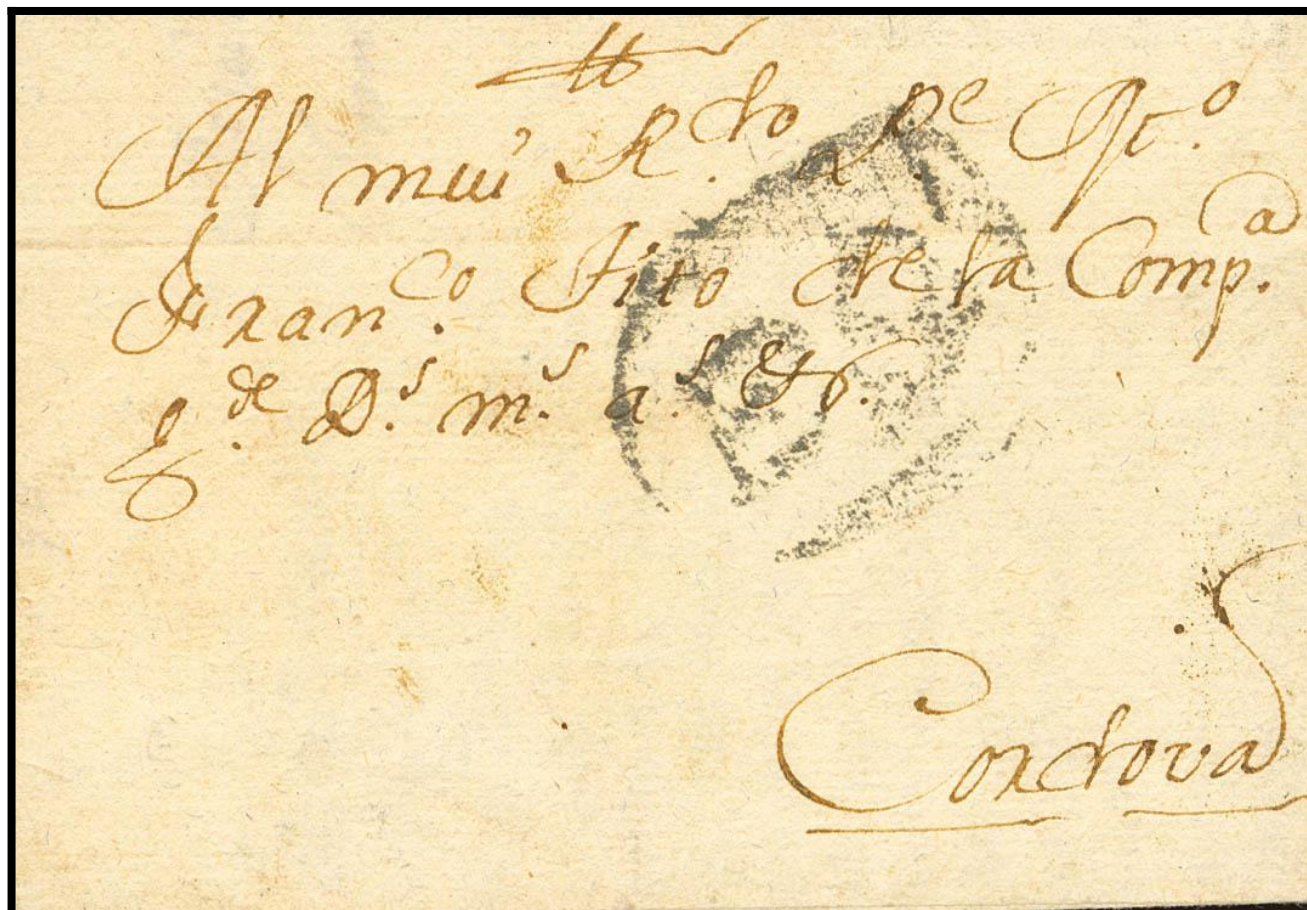 Al mui R.do P.e
Fran.co Tito de la Comp.a
g.de D.s m.s a.s
Cordova